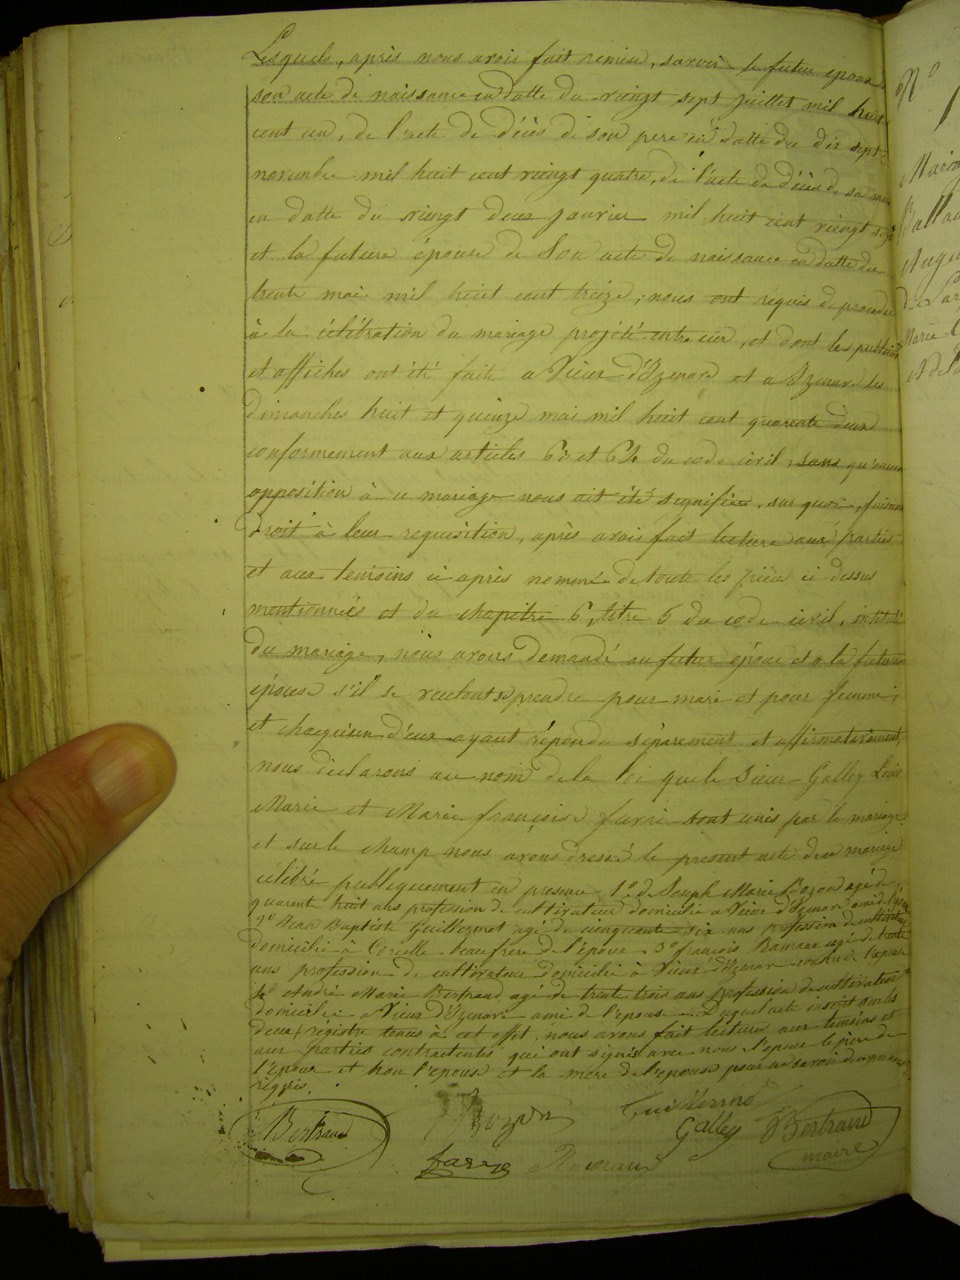 Lesquels, après nous avoir fait remise, savoir le futur époux
son acte de naissance en datte du vingt sept juillet mil huit
cent un, de l'acte de décès de son pere en datte du dix sept
novembre mil huit cent vingt quatre, de l'acte de décès de sa mere
en datte du vingt deux janvier mil huit cent vingt
et la future épouse de Son acte de naissance en datte du
trente mai mil huit cent treize; nous ont requis de proceder
à la célébration du mariage projété entre eux, et dont les
et affiches ont été faite a Vieux d'Izenave et a Izenave les
dimanches huit et quinze mai mil huit cent quarante deux
conformement aux articles 63 et 64 du code civil, sans qu'aucune
opposition à ce mariage nous ait été signifiée, sur quoi, faisant
droit à leur requisition, après avoir fait lecture aux parties
et aux temoins ci après nommé de toute les pièces ci dessus
mentionnées et du chapitre 6, titre 5 du code civil, intitulé
du mariage, nous avons demandé au futur époux et a la future
épouse s'il se veulent prendre pour mari et pour femme;
et chacquun d'eux ayant répondu séparement et affirmativement,
nous déclarons au nom de la loi que le Sieur Galley Louis
Marie et Marie françoise favre sont unis par le mariage
et sur le champ nous avons dressé le present acte du mariage
célébré publiquement en presence 1º de Joseph Marie Bozon agé de
quarente huit ans profession de cultivateur domicilié a Vieux d'Izenave ami de l'époux
2º Jean Baptiste Guillermot agé de cinquante six ans profession de cultivateur
domicilié à Corcelle beaufrere de l'époux 3º françois agé de trente
ans profession de cultivateur domicilié à Vieux d'Izenave de l'épouse
4º André Marie Bertrand agé de trente trois ans profession de cultivateur
domicilié a Vieux d'Izenave ami de l'épouse. Duquel acte inscrit sur les
deux registre tenus à cet effet, nous avons fait lecture aux temoins et
aux parties contractentes qui ont signés avec nous l'époux le père de
l'époux et non l'épouse et la mere de l'épouse pour ne savoir
réquis.
Bertrand Bozon Galley Bertrand
maire
favre
Nº
Marie